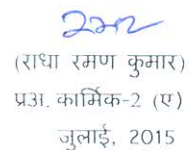 (राधा रमण कुमार)
प्रअ. कार्मिक-2 (ए)
जुलाई, 2015